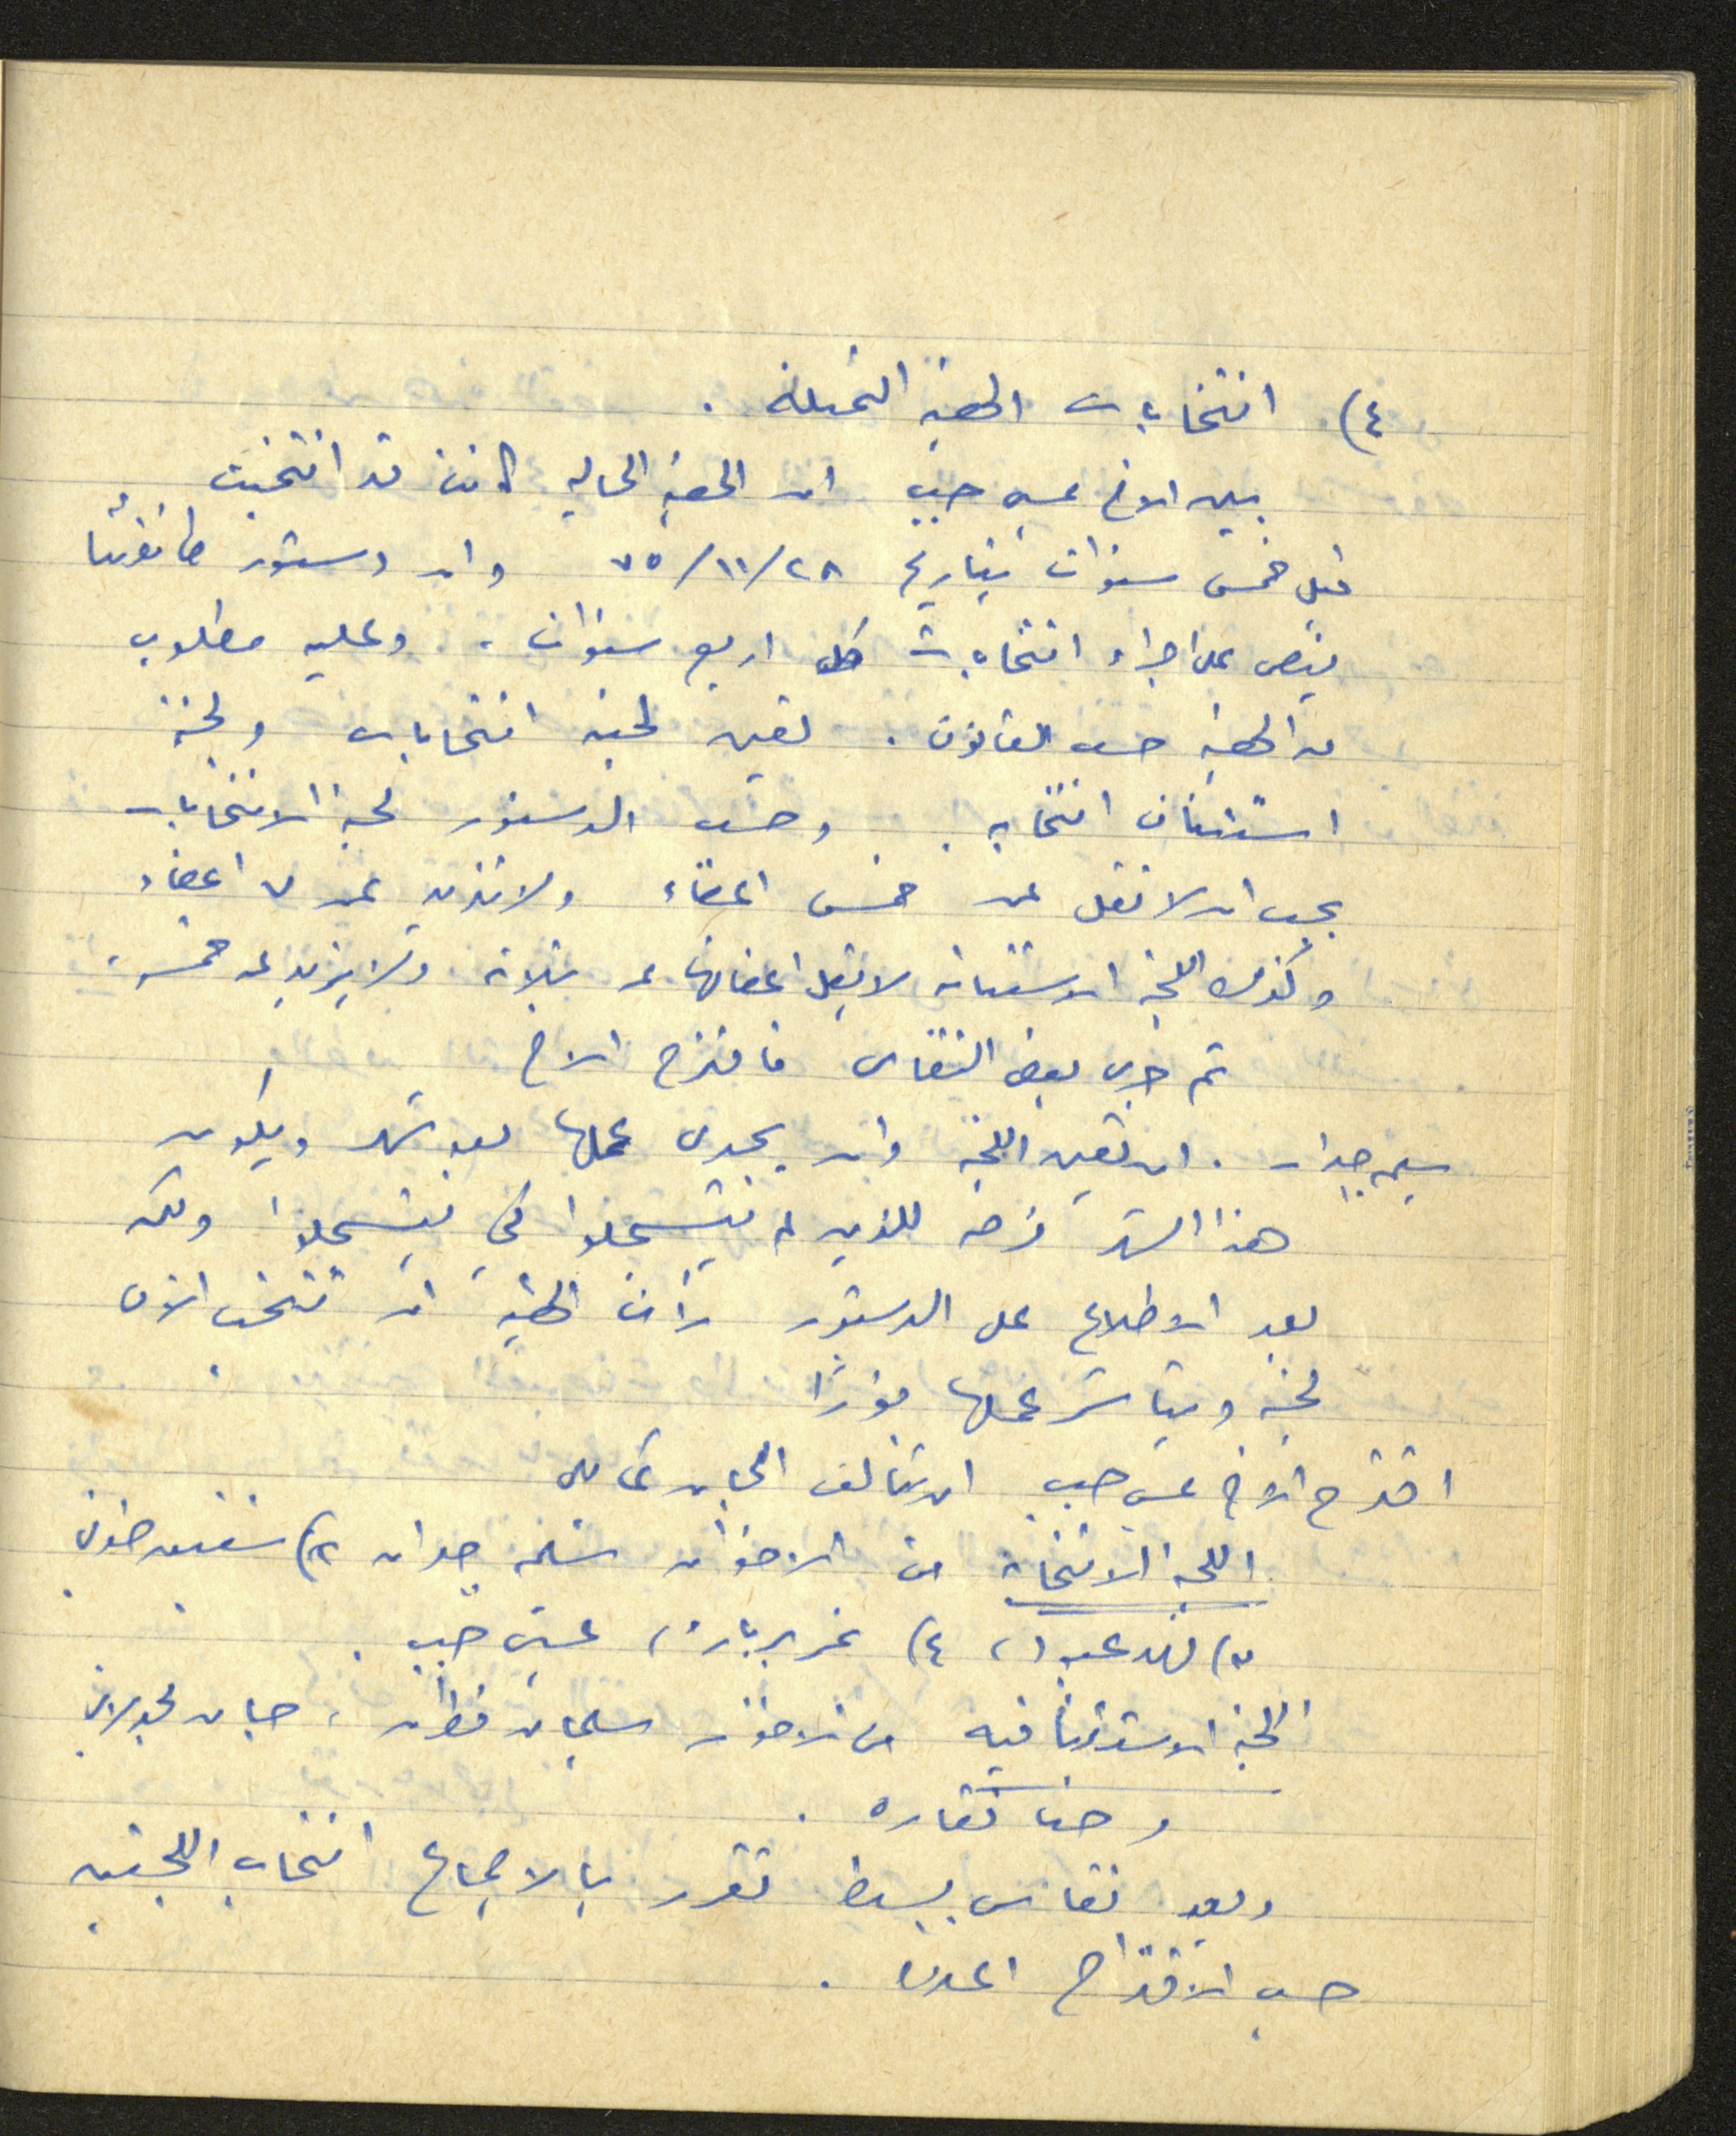 ٤) انتخابات الهيئة الممثلة .
بين الاخ عيسى حبيب ان الهيئة الحالية كانت قد انتخبت
قبل خمس سنوات بتاريخ ٢٨/١١/٧٥ وان دستور طائفتنا
ينص على اجراء انتخابات كل اربع سنوات . وعليه مطلوب
من الهيئة حسب القانون . تعيين لجنة انتخابات ولجنة
استئناف انتخابية . وحسب الدستور لجنة الانتخابات
يجب ان لا تقل عن خمس اعضاء ولا تزيد عن ٧ اعضاء
وكذلك اللجنة الاستئنافية لا يقل اعضائها عن ثلاثة ولا يزيد عن خمسة .
ثم جرى بعض النقاش فاقترح الاخ
سليم جدان . ان تعين اللجنة وان يجري عملها بعد شهر ويكون
هذا الشهر فرصة للذين لم يتسجلوا لكي يتسجلوا ولكن
بعد الاطلاع على الدستور رأت الهيئة ان تنتخب الان
لجنة ويباشر عملها فورًا
اقترح الاخ عيسى حبيب ان تتألف اللجان كما يلي
اللجنة الانتخابية من الاخوان سليم جدان ٢) شفيق
٣) فهد عبود ، ٤) ، عيسى حبيب .
اللجنة الاستئنافية من الاخوان سليمان قطران ،
وحنا نقارة .
وبعد نقاش بسيط تقرر بالاجماع انتخاب اللجنتين
حسب الاقتراح اعلاه .